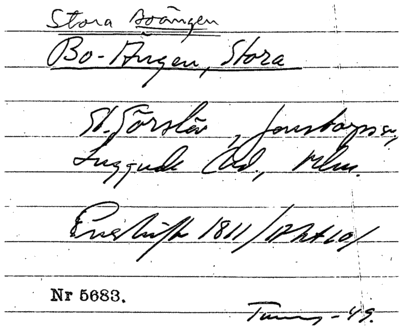 Stora Boängen
Bo-Ängen, Stora
St. Görslöv, Jonstorps sn,
Luggude hd, Mlm.
Enskifte 1811 /
Nr 5683.
-49.